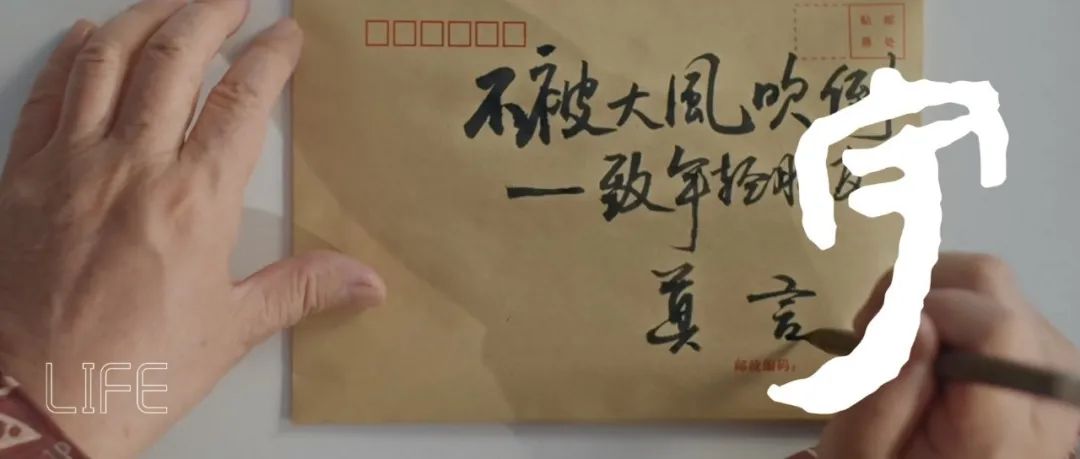 贴 邮
票 处
不被大風吹倒
一致年轻朋友
莫言
邮政编码:
LIFE